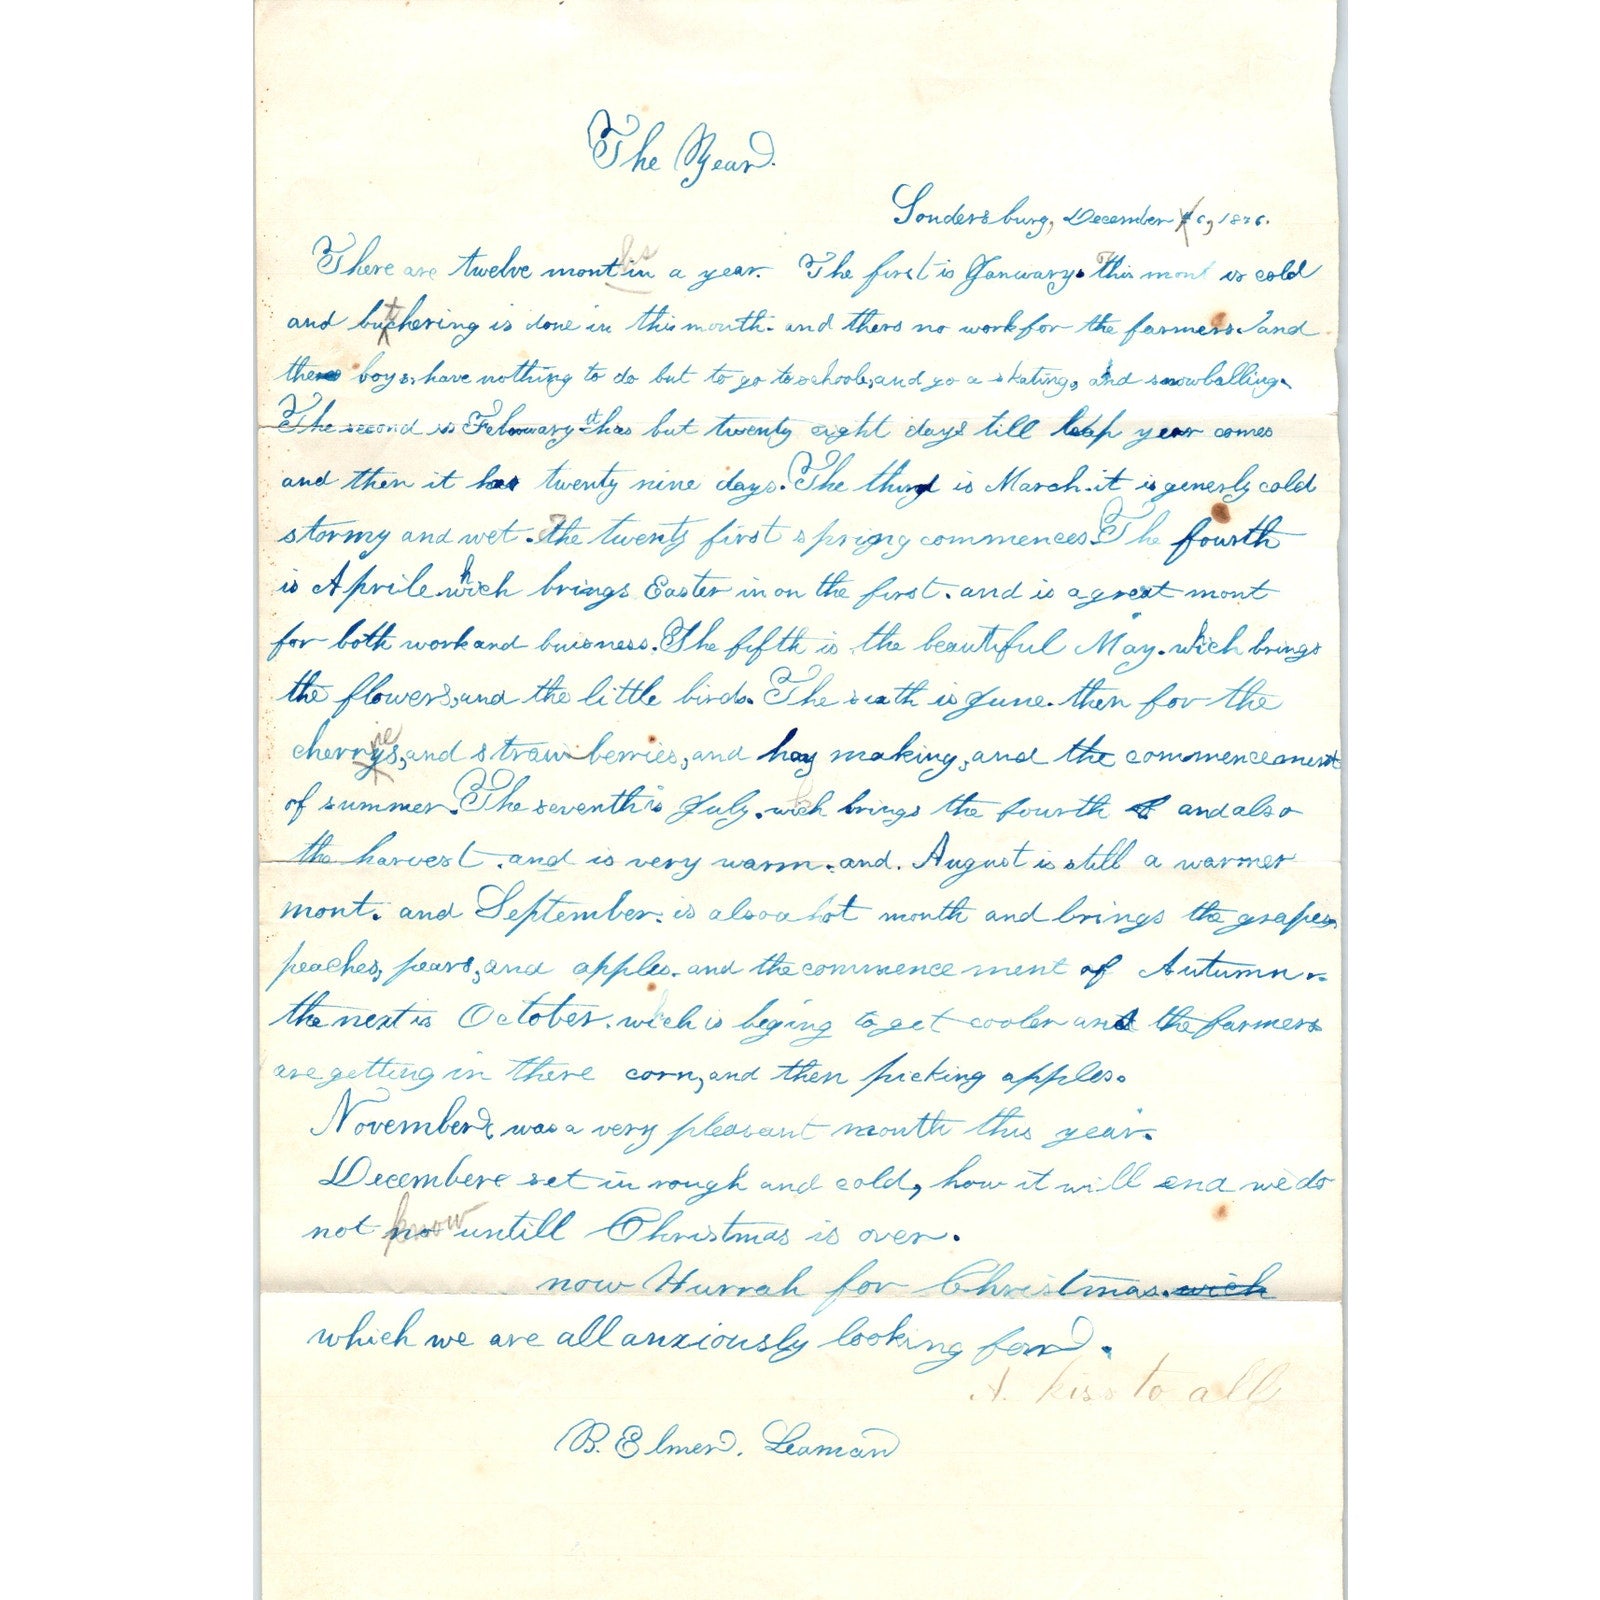 The Year.
Sondersburg, December 6, 1876.
There are twelve monthsin a year. The first is January. This mont is cold
and butchering is done in this month. and thers no work for the farmers. and
the boys, have nothing to do but to go to schoole, and go a skating, and snowballing.
The second is February it has but twenty eight days till leap year comes
and then it has twenty nine days. The third is March. it is generly cold
stormy and wet. The twenty first spring commences. The fourth
is Aprile which brings Easter in on the first. and is a great mont
for both work and buisness. The fifth is the beautiful May. which brings
the flowers, and the little birds. The sixth is June. then for the
cherries, and strawberries, and hay making, and the commencement
of summer. The seventh is July. which brings the fourth and also
the harvest. and is very warm. and. August is still a warmer
mont. and September. is also a hot month and brings the grapes,
peaches, pears, and apples. and the commencement of Autumn.
the next is October. which is beging to get cooler and the farmers
are getting in there corn, and then picking apples.
November, was a very pleasant month this year.
Decembere set in rough and cold, how it will end we do
not know untill Christmas is over.
now Hurrah for Christmas. wich
which we are all anxiously looking for.
A. kiss to all
B. Elmer. Leaman